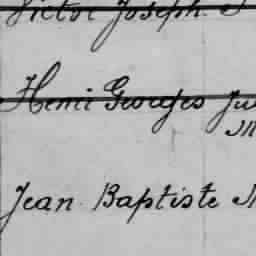 Victor Joseph
Henri Georges Ju
Jean Baptiste